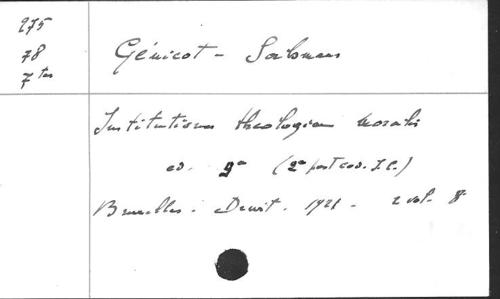 275
78
7 ter
Génicot - Salsmans
Institutiones theologiae moralis
ed. 9a (2a post cod. I.C.)
Bruxelles. Dewit. 1921 - 2 vol. 8°